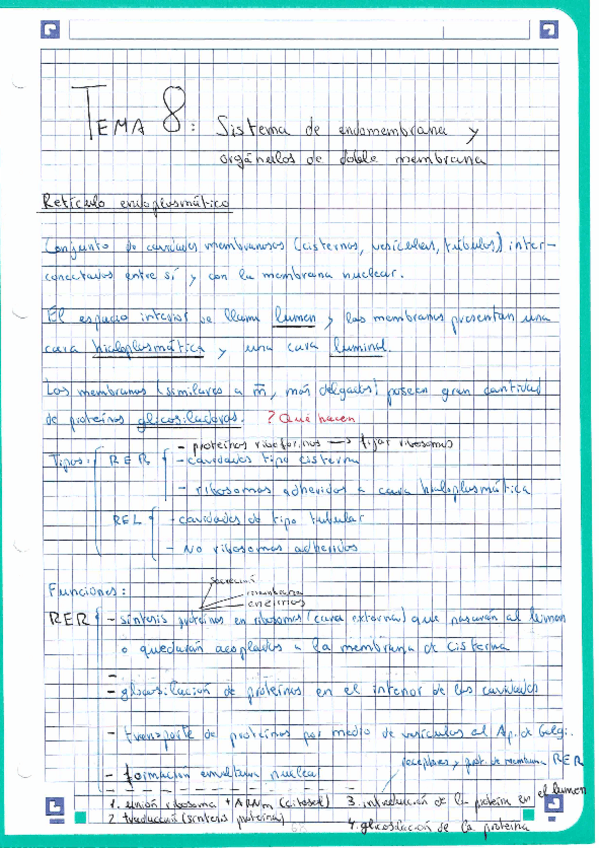 TEMA 8: Sistema de endomembrana y
orgánulos de doble membrana
Retículo endoplasmático
Conjunto de cavidades membranosas (cisternas, vesículas, túbulos) inter-
conectadas entre sí y con la membrana nuclear.
El espacio interior se llama lumen y las membranas presentan una
cara hialoplasmática y una cara luminal.
Las membranas (similares a m̄, más delgadas) poseen gran cantidad
de proteínas glicosiladoras. ? Qué hacen
- proteínas riboforinas → fijar ribosomas
Tipos: RER - cavidades tipo cisterna
- ribosomas adheridos a cara hialoplasmática
REL - cavidades de tipo tubular
- No ribosomas adheridos
secreción
Funciones: membrana
enzimas
RER - síntesis proteínas en ribosomas (cara externa) que pasarán al lumen
o quedarán acoplados a la membrana de cisterna
- glicosilación de proteínas en el interior de las cavidades
- transporte de proteínas por medio de vesículas al Ap. de Golgi.
- formación envoltura nuclear
receptores y prot. de membrana RER
1. unión ribosoma + ARNm (citosol) 3. introducción de la proteína en el lumen
2. traducción (síntesis proteína)
4. glicosilación de la proteína